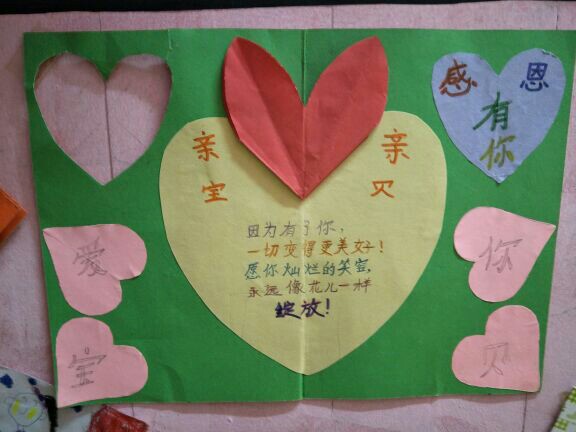 感 恩
有
你
亲 亲
宝 贝
因为有了你，
一切变得更美好！
愿你灿烂的笑容，
永远像花儿一样
绽放！
爱 你
宝 贝